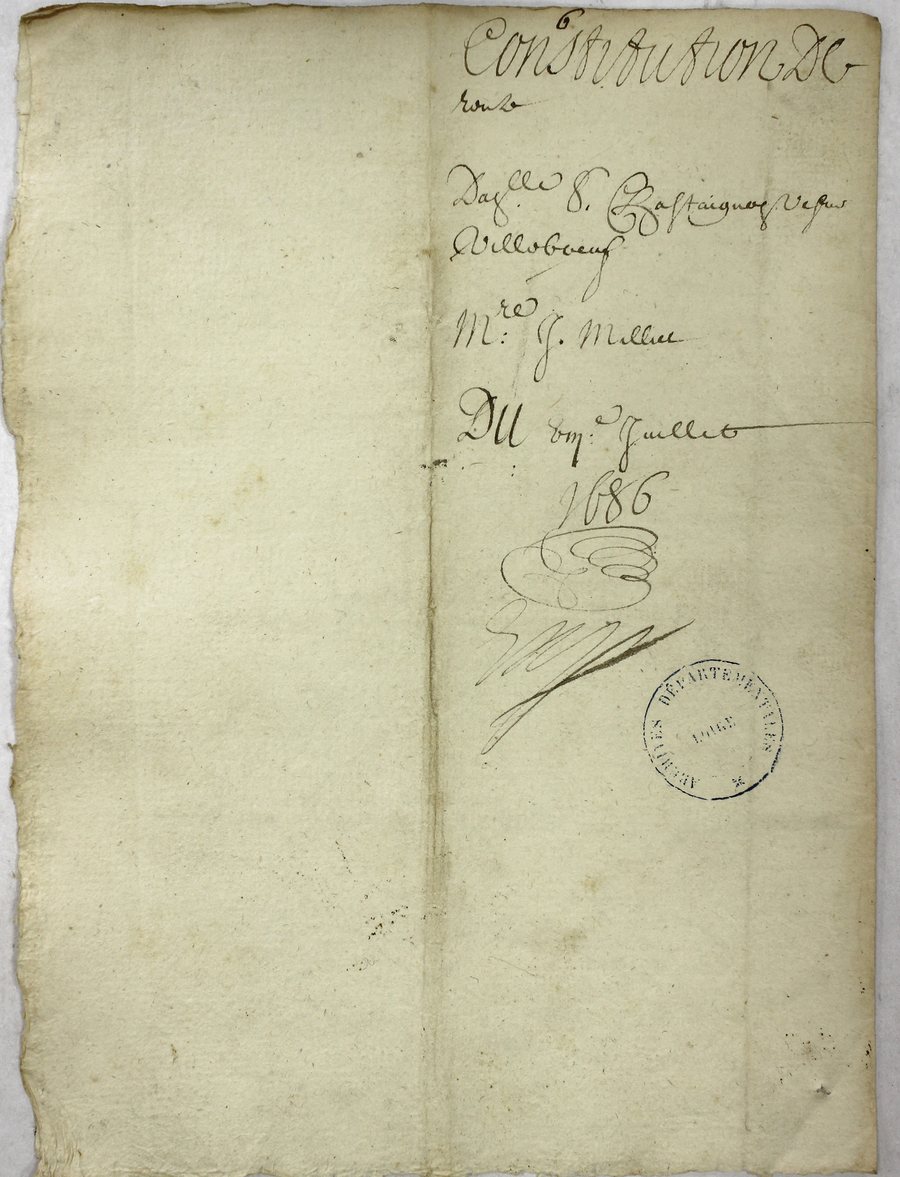 Constitution De
rente
Dag.lle S. Chastaignon Vefue
Villeboeuf
M.re J. Milliet
DU vm.e Juillet
1686
ARCHIVES DÉPARTEMENTALES
LOIRE